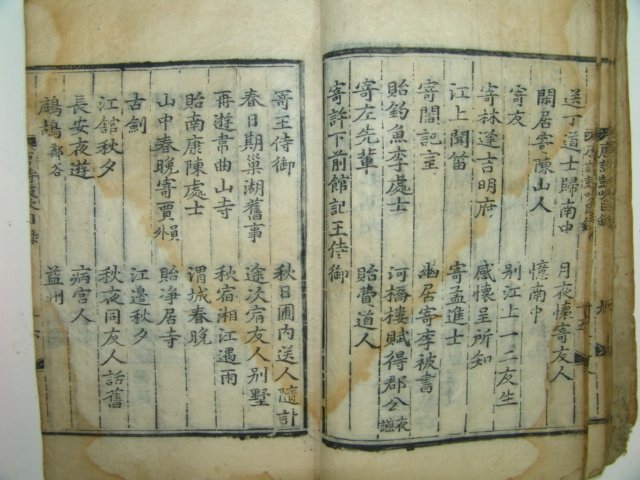 送丁道士歸南中 月夜懷寄友人
閑居寄陳山人 憶南中
寄友 別江上一二友生
寄林逢吉明府 感懷呈所知
江上聞笛 寄孟進士
寄閻記室 幽居寄李秘書
貽釣魚李處士 河橋樓賦得郡公夜讌
寄左先輩 貽費道人
寄許下前館記王侍御
哥王侍御 秋日圃內送人隨計
春日期巢湖舊事 途次宿友人別墅
再遊韋曲山寺 秋宿湘江遇雨
貽南康陳處士 渭城春晚
山中春晚寄賈員外 貽淨居寺
古劍 江邊秋夕
江館秋夕 秋夜同友人話舊
長安夜遊 病宮人
鷓鴣 鄭谷 益州